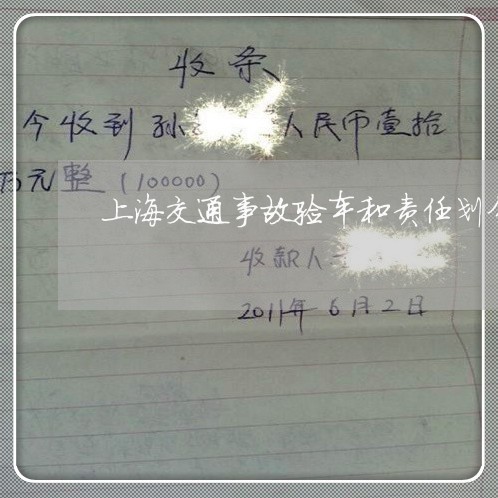 收条
今收到孙 人民币壹拾
万元整(100000)
上海交通事故验车和责任划
收款人
2011年6月2日